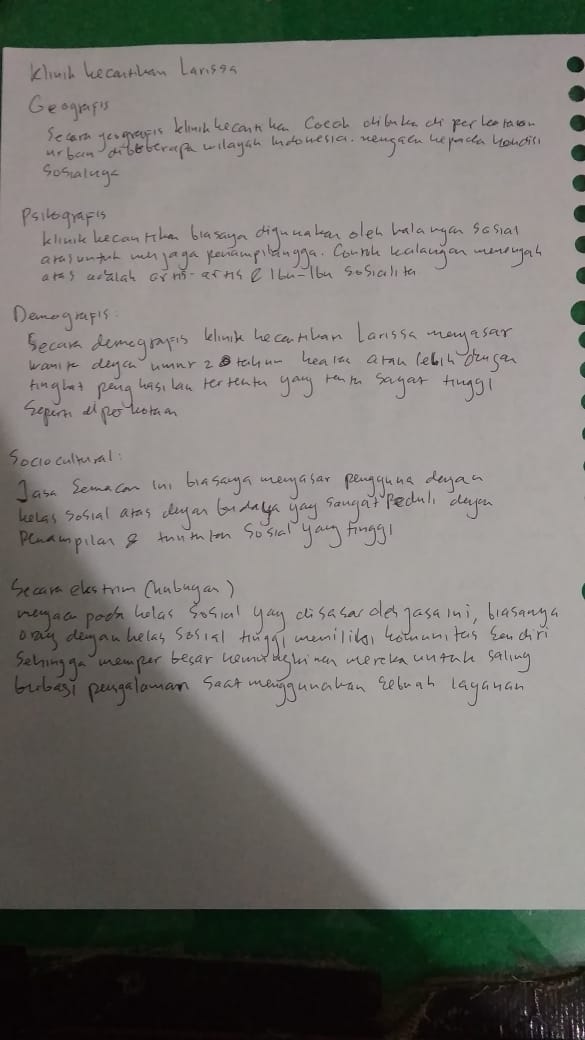 Klinik kecantikan Larissa
Geografis
Secara geografis klinik kecantikan Cocok dibuka di perkotaan
urban di beberapa wilayah Indonesia. mengacu kepada kondisi
Sosialnya
Psikografis
klinik kecantikan biasaya digunakan oleh kalangan sosial
atas untuk menjaga penampilannya. Contoh kalangan menengah
atas adalah artis-artis & Ibu-Ibu Sosialita
Demografis:
Secara demografis klinik kecantikan Larissa menyasar
wanita dengan umur 20 tahun keatas atau lebih dengan
tingkat penghasilan tertentu yang tentu sagat tinggi
Seperti di perkotaan
Sociocultural:
Jasa Semacam ini biasanya menyasar pengguna dengan
kelas sosial atas dengan budaya yag sangat Peduli dengan
Penampilan & tuntutan Sosial yang tinggi
Secara ekstrim (hubugan)
mengacu pada kelas Sosial yag disasar jasa ini, biasanya
orag dengan kelas Sosial tinggi memiliki komunitas Sendiri
Sehingga memper besar kemungkinan mereka untuk saling
berbagi pengalaman Saat menggunakan Sebuah layanan